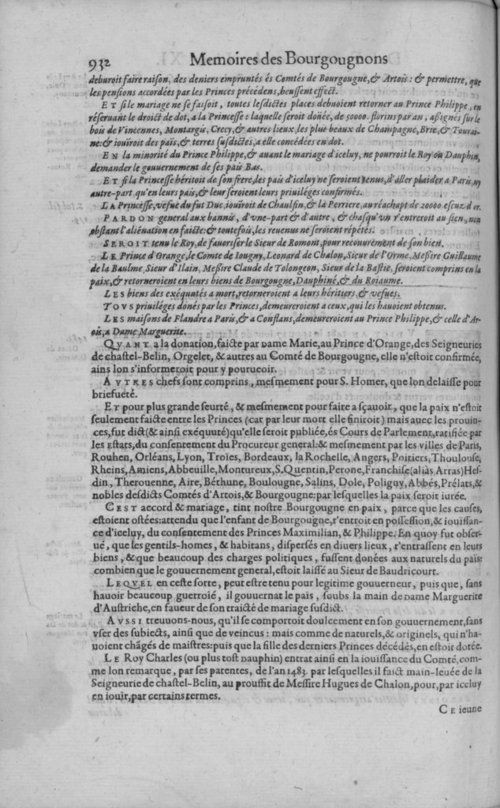 932 Memoires des Bourgougnons
deburoit faire raison, des deniers empruntés és Comtés de Bourgougne, & Artois: & permettre, que
les pensions accordées par les Princes précédens, heussent effect.
ET si le mariage ne se faisoit, toutes lesdictes places debuoient retorner au Prince Philippe, en
réseruant le droict de dot, a la Princesse: laquelle seroit donée, de 50000. florins par an, assignés sur le
bois de Vincennes, Montargis, Crecy, & autres lieux, les plus beaux de Champagne, Brie, & Tourai-
ne: & iouiroit des païs, & terres susdictes, a elle concédées en dot.
EN la minorité du Prince Philippe, & auant le mariage d'iceluy, ne pourroit le Roy ou Dauphin,
demander le gouuernement de ses païs Bas.
ET si la Princesse héritoit de son frere, les païs d'iceluy ne seroient tenus, d'aller plaider a Paris, ny
autre-part, qu'en leurs païs, & leur seroient leurs priuiléges confirmés.
LA Princesse, vesue du fut Duc, iouiroit de Chaulsin, & la Perriere, au réachapt de 20000. escuz. d'or.
PARDON general aux bannis, d'vne-part & d'autre, & chasqu'vn r'entreroit au sien, non
obstant l'aliénation en faicte: & toutefois, les reuenus ne seroient répétés.
SEROIT tenu le Roy, de fauoriser le Sieur de Romont, pour recouurement de son bien.
LE Prince d'Orange, le Comte de Iougny, Leonard de Chalon, Sieur de l'Orme, Messire Guillaume
de la Baulme, Sieur d'Ilain, Messire Claude de Tolongeon, Sieur de la Bastie, seroient comprins en la
paix, & retorneroient en leurs biens de Bourgougne, Dauphiné, & du Roiaume.
LES biens des exéqutés a mort, retorneroient a leurs héritiers, & vesues.
TOVS priuiléges donés par les Princes, demeureroient a ceux, qui les hauoient obtenus.
LES maisons de Flandre a Paris, & a Conflans, demeureroient au Prince Philippe, & celle d'Ar-
ois, a Dame Marguerite.
QVANT a la donation, faicte par dame Marie, au Prince d'Orange, des Seigneuries
de chastel-Belin, Orgelet, & autres au Comté de Bourgougne, elle n'estoit confirmée,
ains lon s'informeroit pour y pourueoir.
AVTRES chefs sont comprins, mesmement pour S. Homer, que lon delaisse pour
briefueté.
ET pour plus grande seurté, & mesmement pour faire a sçauoir, que la paix n'estoit
seulement faicte entre les Princes (car par leur mort elle finiroit) mais auec les prouin-
ces, fut dict (& ainsi exéquuté) qu'elle seroit publiée, és Cours de Parlement, ratifiée par
les Estats, du consentement du Procureur general: & mesmement par les villes de Paris,
Rouhen, Orléans, Lyon, Troies, Bordeaux, la Rochelle, Angers, Poitiers, Thoulouse,
Rheins, Amiens, Abbeuille, Montureux, S. Quentin, Perone, Franchise (aliàs Arras) Hes-
din, Therouenne, Aire, Béthune, Boulougne, Salins, Dole, Poligny, Abbés, Prélats, &
nobles desdicts Comtés d'Artois, & Bourgougne: par lesquelles la paix seroit iurée.
CEST accord & mariage, tint nostre Bourgougne en paix, parce que les causes,
estoient ostées: attendu que l'enfant de Bourgougne, r'entroit en possession, & iouissan-
ce d'iceluy, du consentement des Princes Maximilian, & Philippe. En quoy fut obser-
ué, que les gentils-homes, & habitans, dispersés en diuers lieux, r'entrassent en leurs
biens, & que beaucoup des charges politiques, fussent donées aux naturels du païs:
combien que le gouuernement general, estoit laissé au Sieur de Baudricourt.
LEQVEL en ceste sorte, peut estre tenu pour legitime gouuerneur, puis que, sans
hauoir beaucoup guerroié, il gouuernat le païs, soubs la main de dame Marguerite
d'Austriche, en faueur de son traicté de mariage susdict.
AVSSI treuuons-nous, qu'il se comportoit doulcement en son gouuernement, sans
vser des subiects, ainsi que de veincus: mais comme de naturels, & originels, qui n'ha-
uoient chãgés de maistres: puis que la fille des derniers Princes décédés, en estoit dotée.
LE Roy Charles (ou plus tost dauphin) entrat ainsi en la iouissance du Comté, com-
me lon remarque, par ses patentes, de l'an 1483. par lesquelles il faict main-leuée de la
Seigneurie de chastel-Belin, au prouffit de Messire Hugues de Chalon, pour, par iceluy
en iouir, par certains termes.
CE ieune